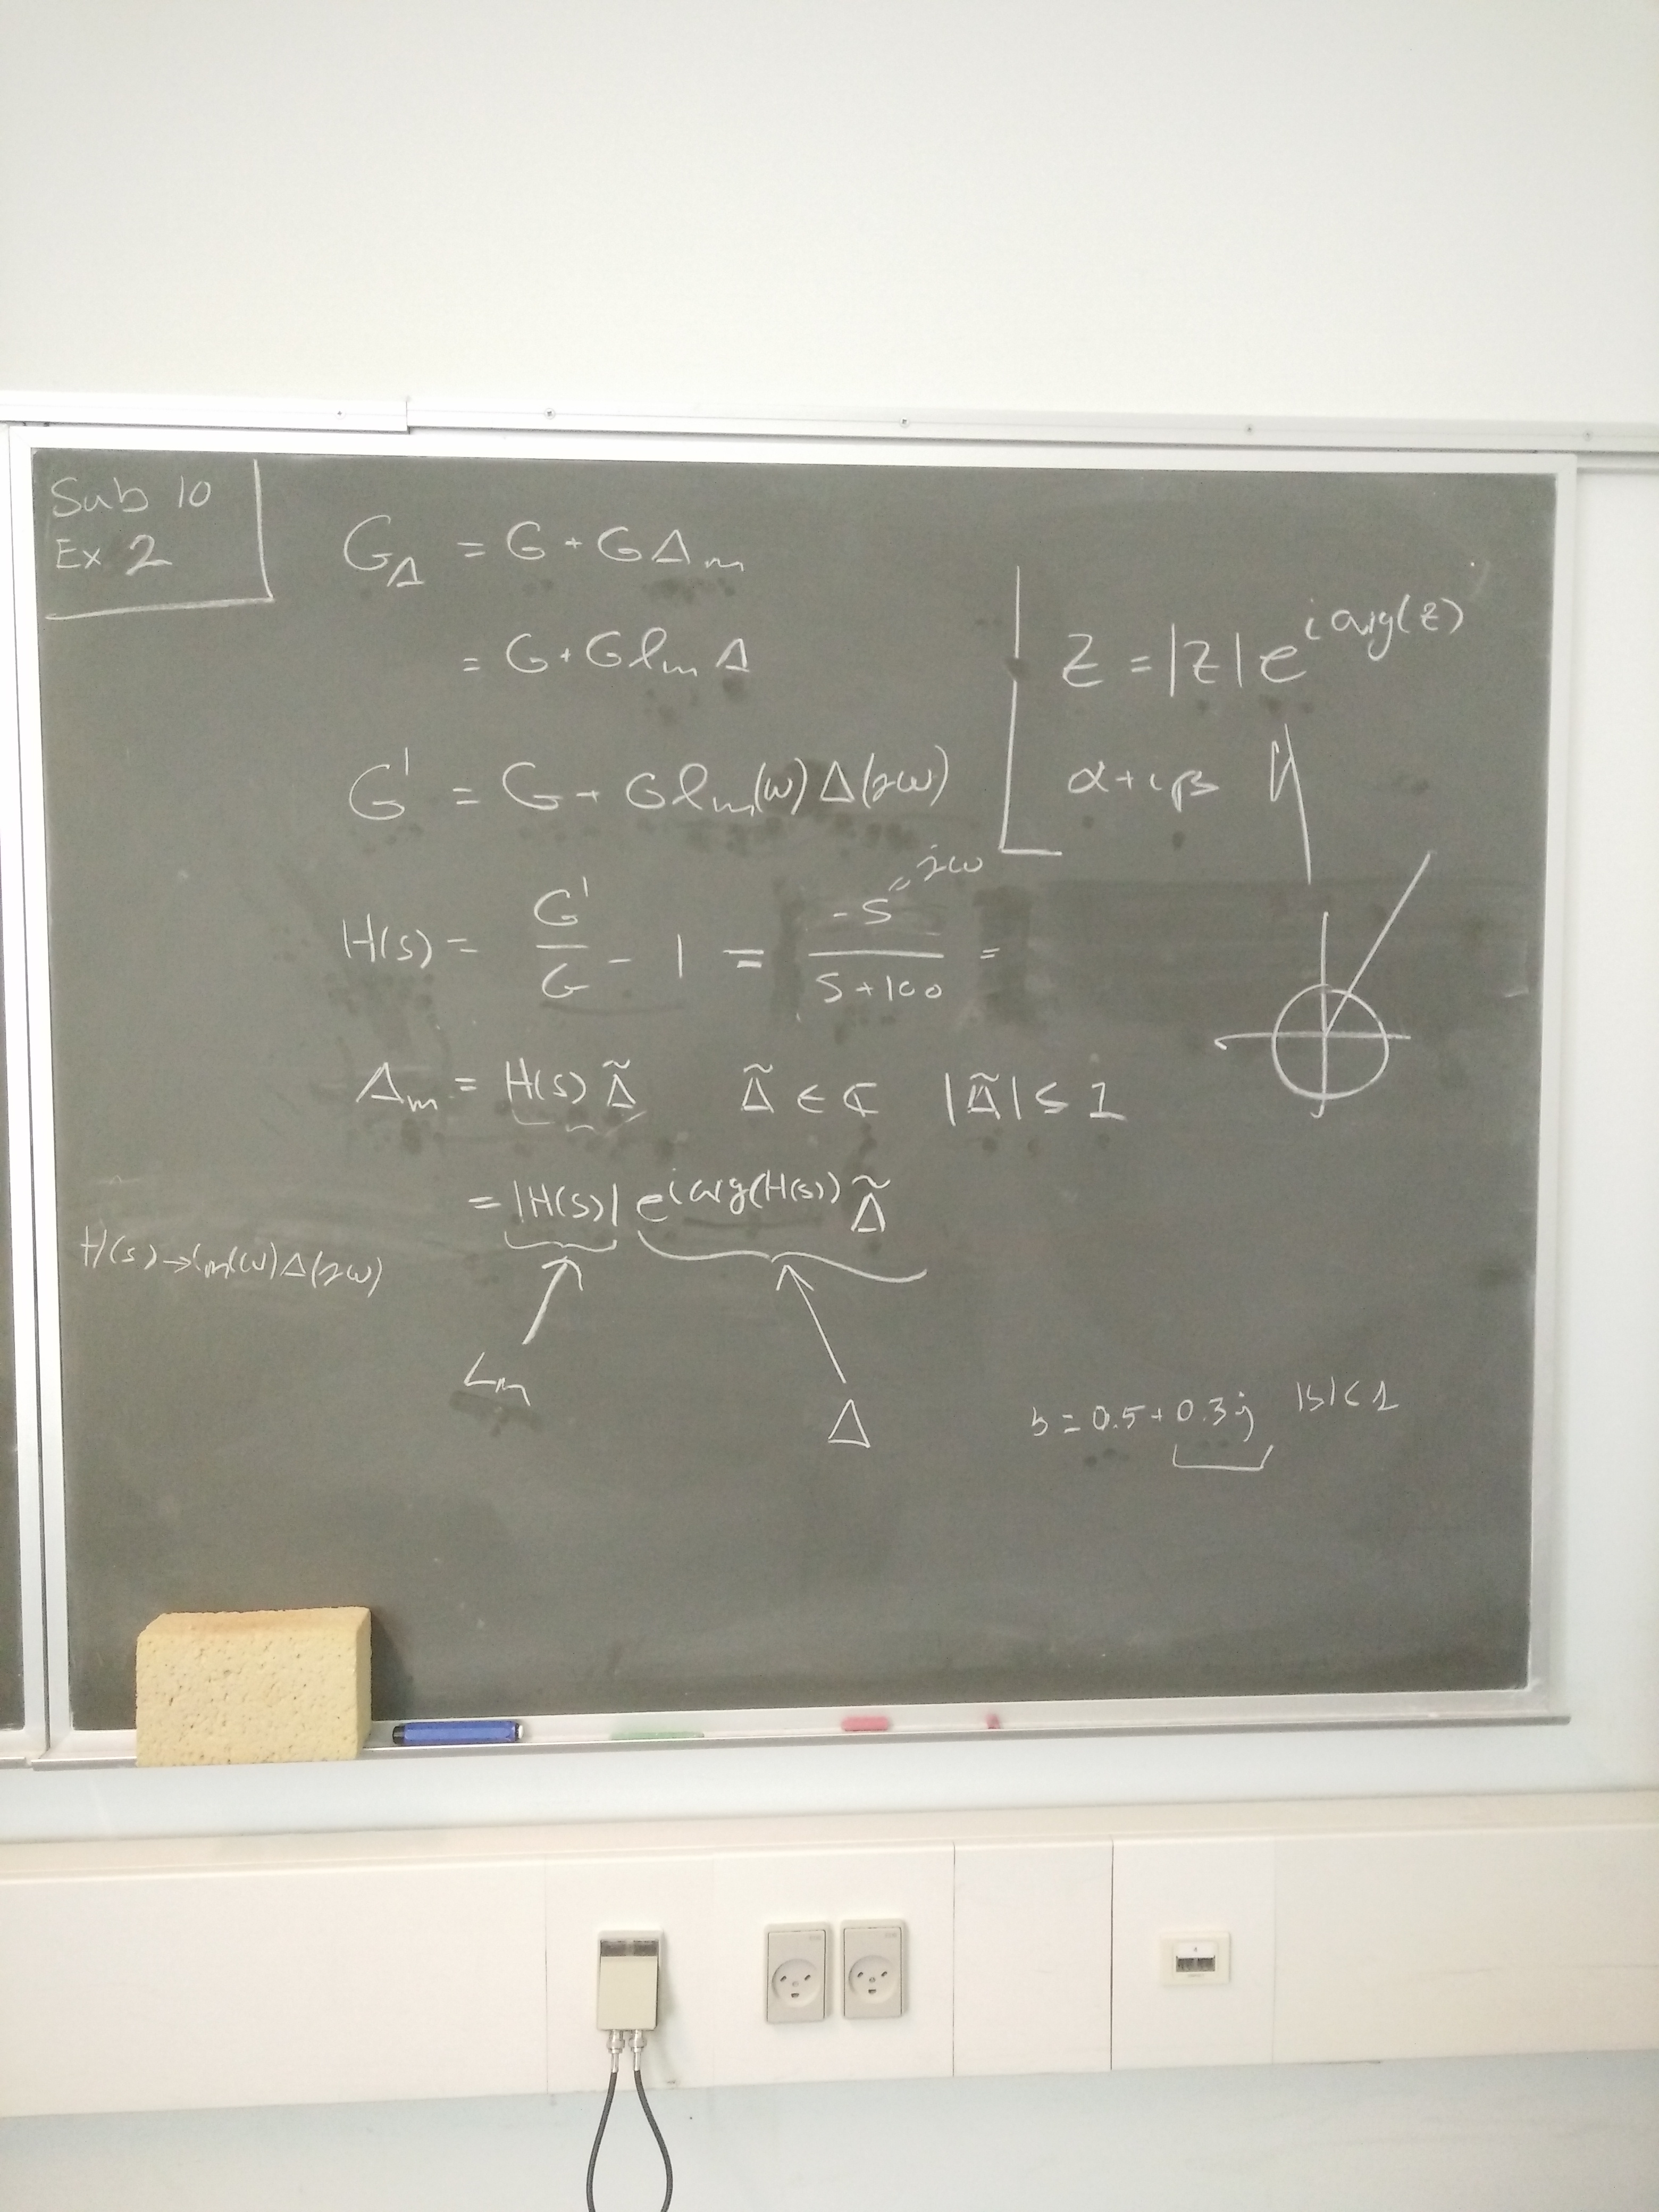 Sub 10
Ex 2
G_Δ = G + GΔ_m
= G + Gℓ_m Δ
G' = G + Gℓ_m(ω)Δ(jω)
H(s) = G'/G - 1 = -s/(s+100) =
jω
Δ_m = H(s)Δ̃ Δ̃ ∈ ℂ |Δ̃| ≤ 1
= |H(s)| e^{i arg(H(s))} Δ̃
H(s) → ℓ_m(ω)Δ(jω)
L_m
Δ
z = |z| e^{i arg(z)}
α + iβ
b = 0.5 + 0.3j |b| < 1